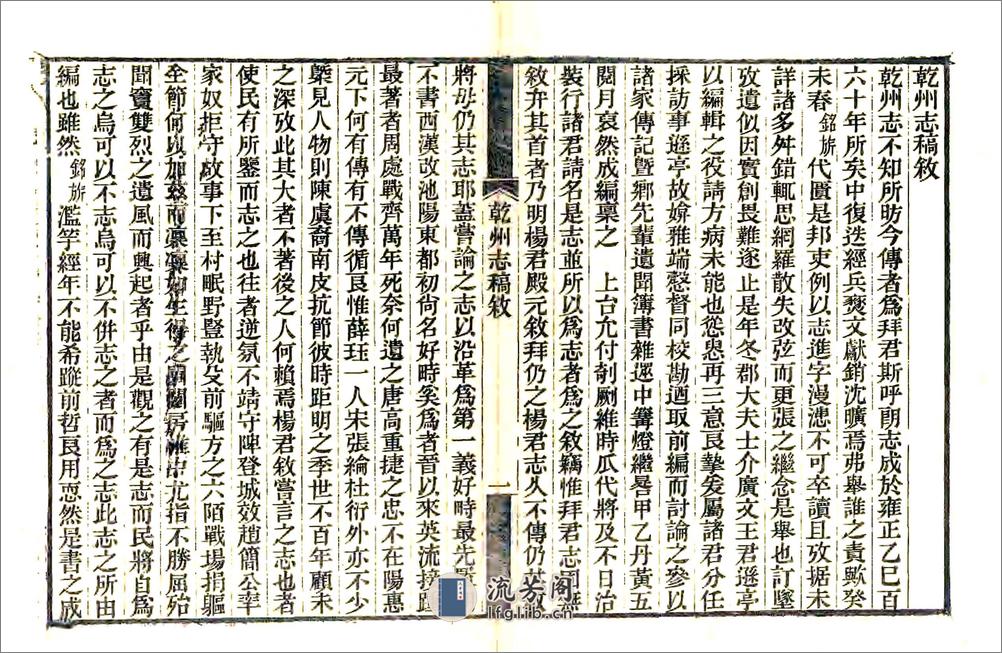 乾州志稿敘
乾州志不知所昉今傳者爲拜君斯呼朗志成於雍正乙巳百
六十年所矣中復迭經兵燹文獻銷沈曠焉弗舉誰之責歟癸
未春銘旂代匱是邦吏例以志進字漫漶不可卒讀且攷据未
詳諸多舛錯輒思網羅散失改弦而更張之繼念是舉也訂墜
攷遺似因實創畏難遂止是年冬郡大夫士介廣文王君遜亭
以編輯之役請方病未能也從臾再三意良摯爰屬諸君分任
採訪事遜亭故媕雅端慤督同校勘迺取前編而討論之參以
諸家傳記曁鄉先輩遺聞簿書雜遝中篝燈繼晷甲乙丹黃五
閱月裒然成編稟之 上台允付剞劂維時瓜代將及不日治
裝行諸君請名是志並所以爲志者爲之敘竊惟拜君志
敘弁其首者乃明楊君殿元敘拜仍之楊君志久不傳仍其敘
將毋仍其志耶蓋嘗論之志以沿革爲第一義好時最先
不書西漢改池陽東都初尙名好時矣爲者晉以來英流
最著者周處戰齊萬年死奈何遺之唐高重捷之忠不在陽惠
元下何有傳有不傳循良惟薛珏一人宋張綸杜衍外亦不少
槩見人物則陳虞裔南皮抗節彼時距明之季世不百年顧未
之深攷此其大者不著後之人何賴焉楊君敘嘗言之志也者
使民有所鑒而志之也往者逆氛不靖守陴登城效趙簡公率
家奴拒守故事下至村眠野豎執殳前驅方之六陌戰場捐軀
全節何以加茲而凜凜如生得之閨閫房帷中尤指不勝屈殆
聞竇雙烈之遺風而興起者乎由是觀之有是志而民將自爲
志之烏可以不志烏可以不併志之者而爲之志此志之所由
編也雖然銘旂濫竽經年不能希蹤前哲良用恧然是書之成
乾州志稿敘
一
流芳阁
lfglib.cn